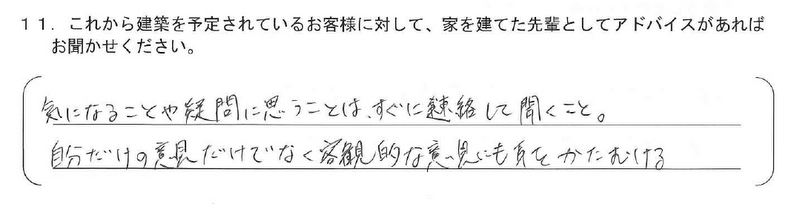 １１．これから建築を予定されているお客様に対して、家を建てた先輩としてアドバイスがあれば
お聞かせください。
気になることや疑問に思うことは、すぐに連絡して聞くこと。
自分だけの意見だけでなく客観的な意見にも耳をかたむける